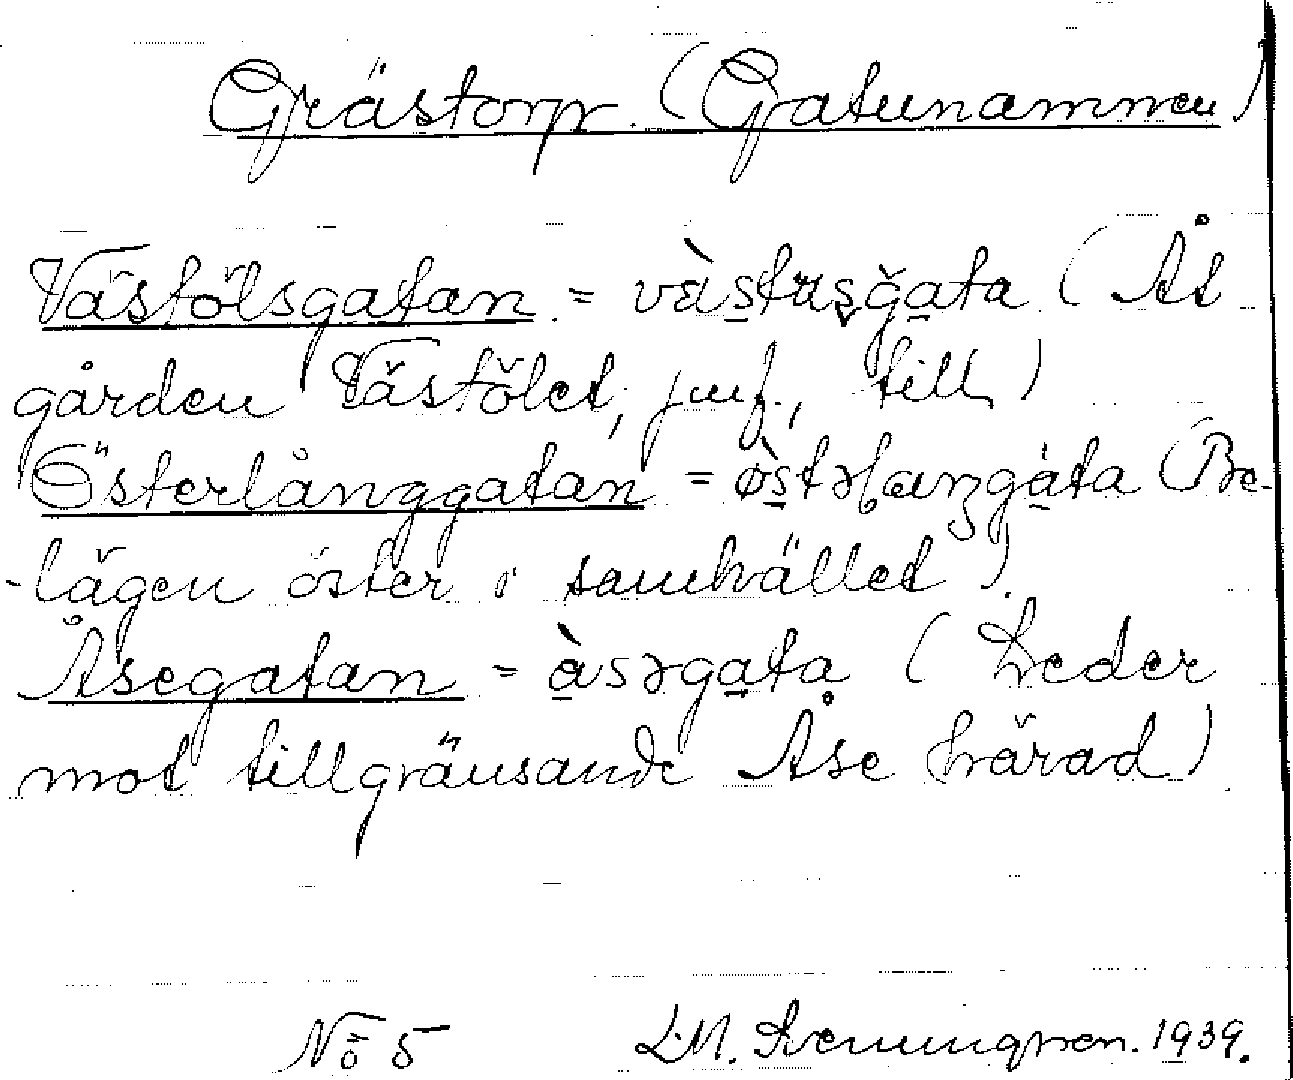 Grästorp. (Gatunamnen)
Västölsgatan = vàstɯsgata (Åt
gården Västölet, jmf., till)
Österlånggatan = østəɭaŋgáta (Be-
-lägen öster i samhället).
Åsegatan = àsəgata (Leder
mot tillgränsande Åse härad)
No 5 L.M. Svenungsson. 1939.